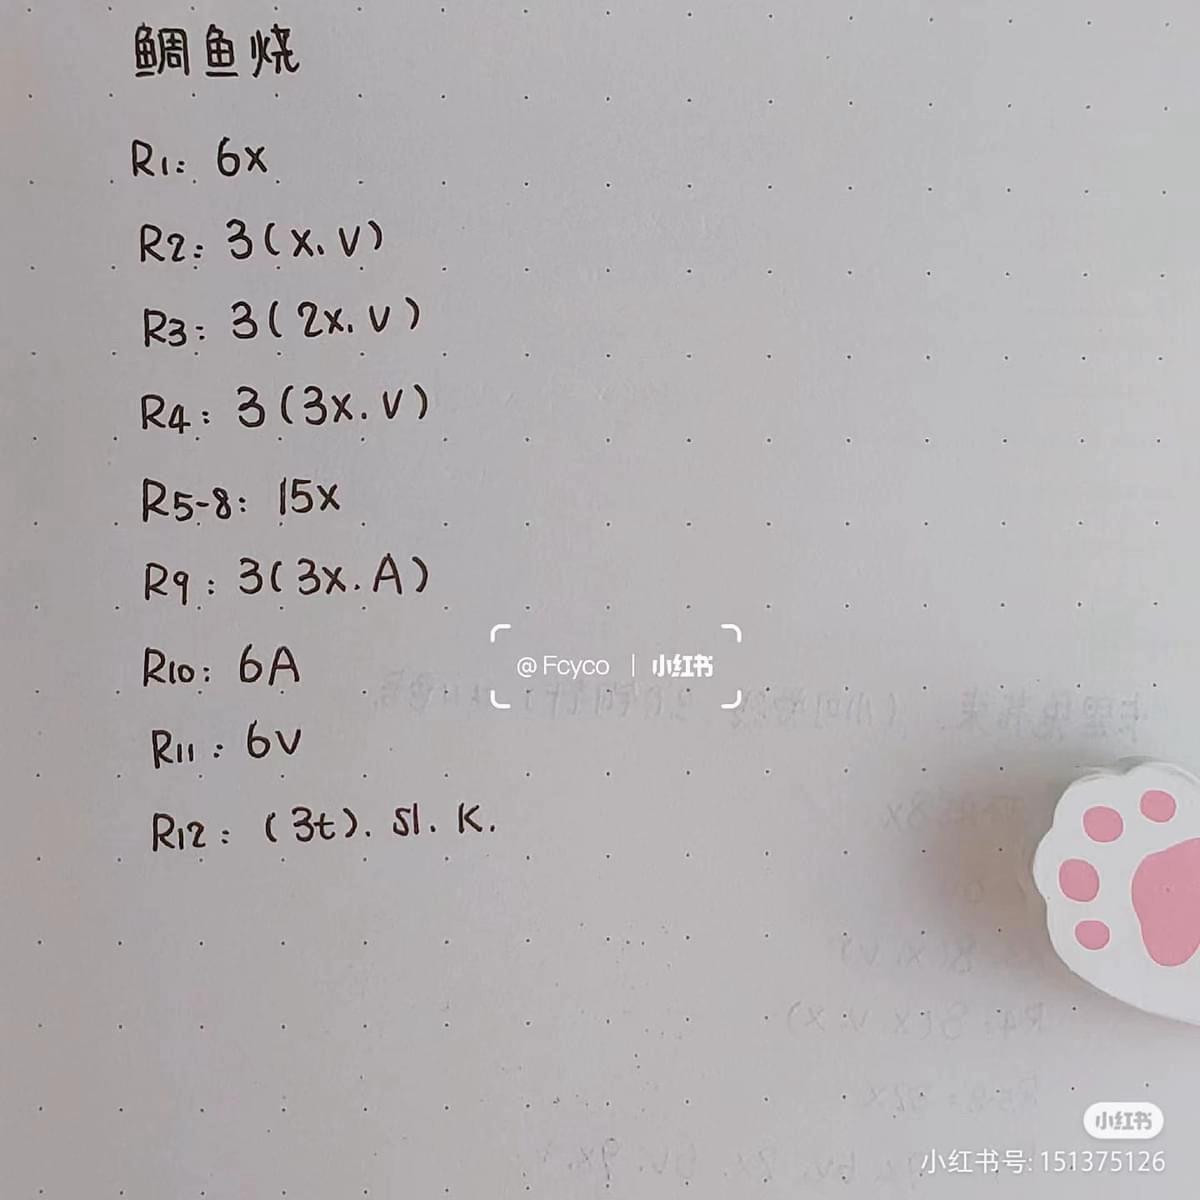 鲷鱼烧
R1: 6x
R2: 3(x.v)
R3: 3(2x.v)
R4: 3(3x.v)
R5-8: 15x
R9: 3(3x.A)
R10: 6A
R11: 6v
R12: (3t). sl. K.
@Fcyco | 小红书
小红书
小红书号: 151375126